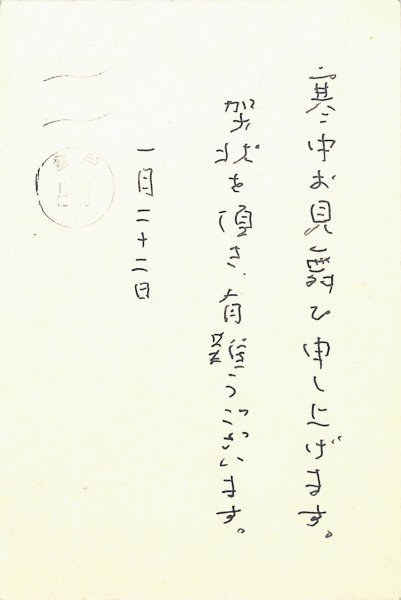 寒中お見舞ひ申し上げます。
賀状を頂き、有難うございます。
一月二十二日